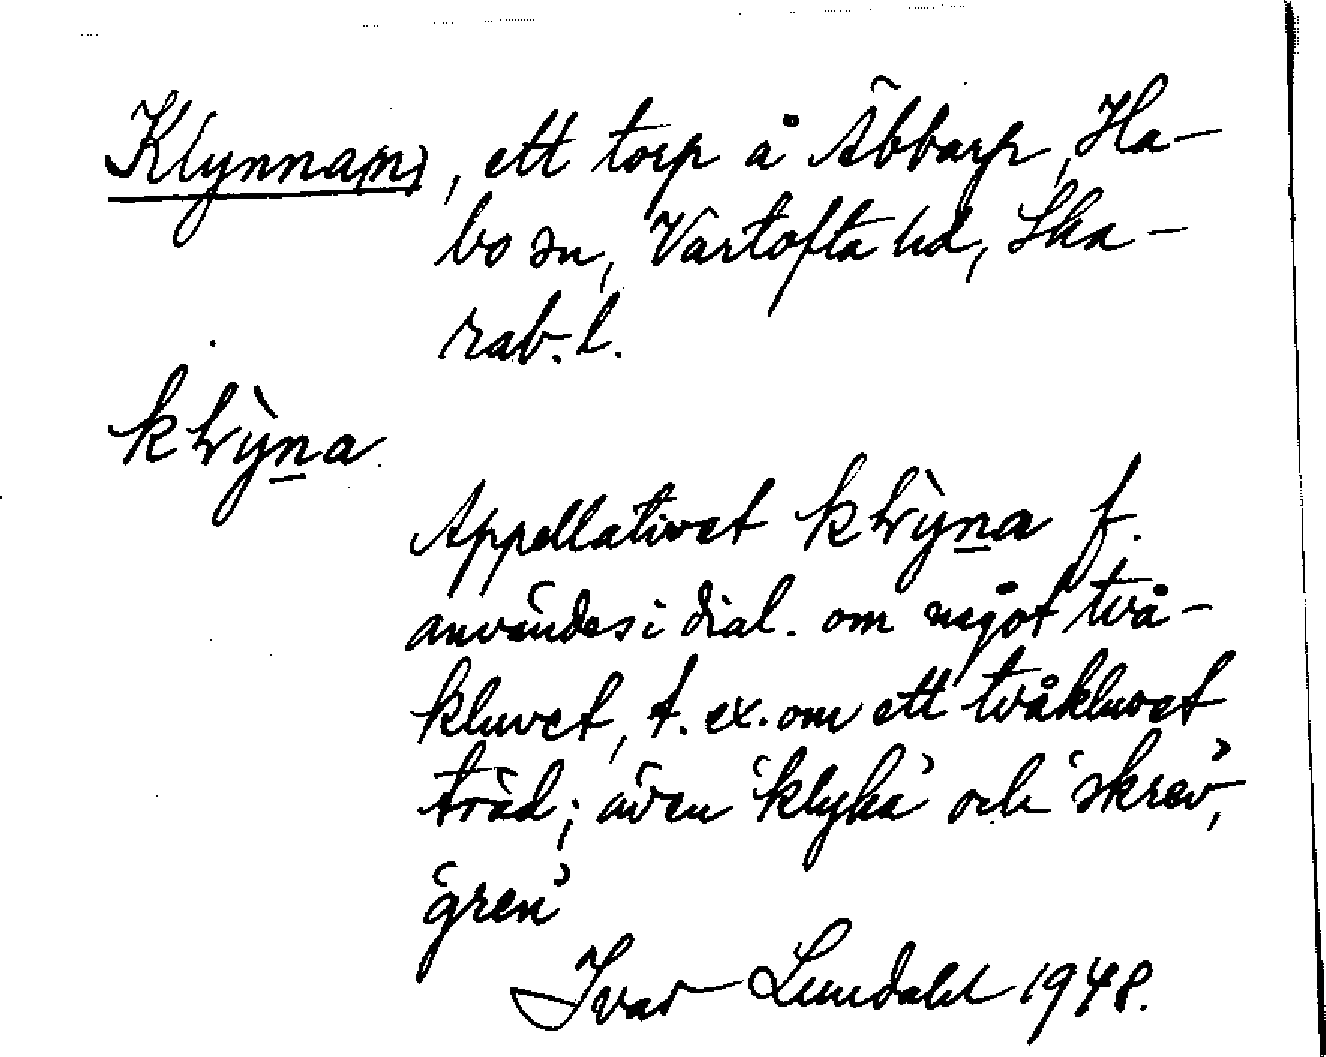 Klynna(n), ett torp å Äbbarp, Ha-
bo sn, Vartofta hd, Ska-
rab. l.
klỳn̲a
Appellativet klỳn̲a f.
användes i dial. om något två-
kluvet, t. ex. om ett tvåkluvet
träd; även 'klyka' och 'skrev',
'gren'
Ivar Lundahl 1948.